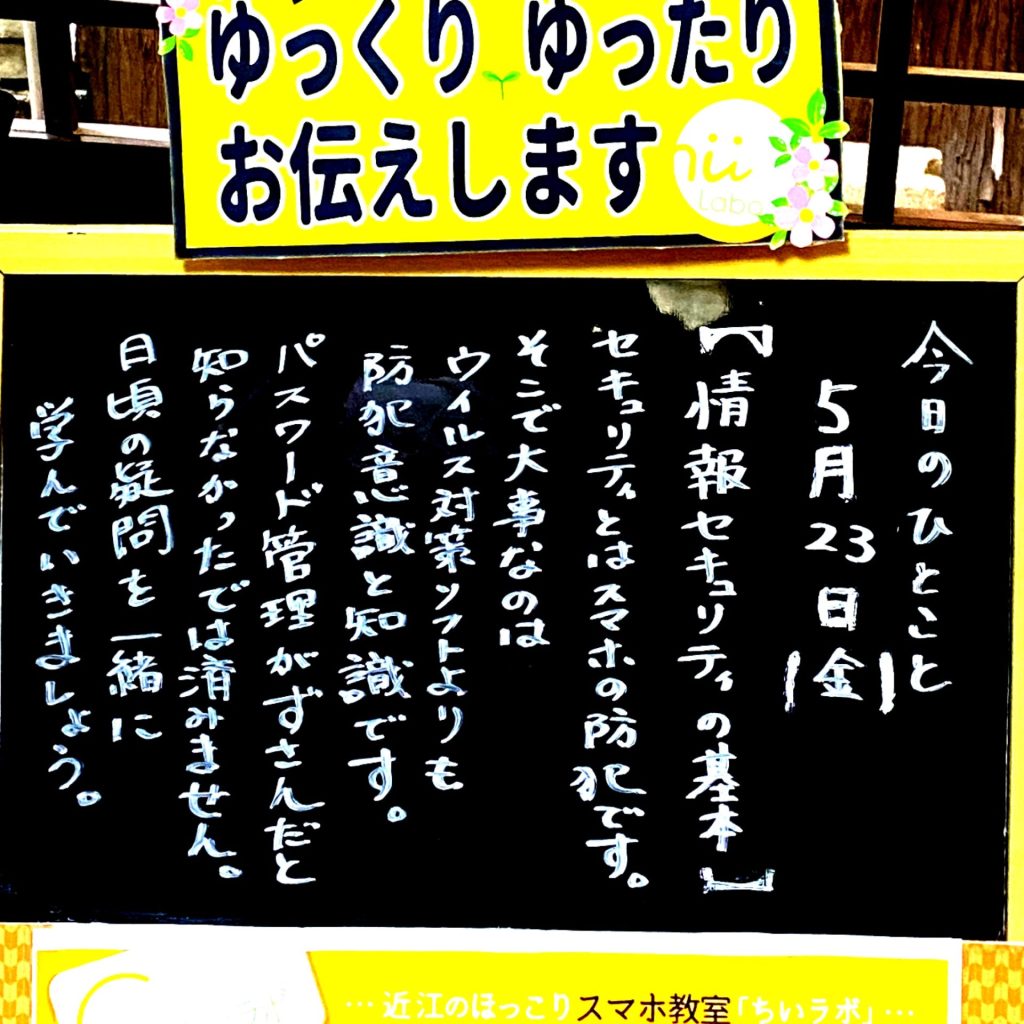 ゆっくり ゆったり
お伝えします
Labo
今日のひとこと
5月23日(金)
【情報セキュリティの基本】
セキュリティとはスマホの防犯です。
そこで大事なのは
ウィルス対策ソフトよりも
防犯意識と知識です。
パスワード管理がずさんだと
知らなかったでは済みません。
日頃の疑問を一緒に
学んでいきましょう。
…近江のほっこりスマホ教室「ちいラボ」…